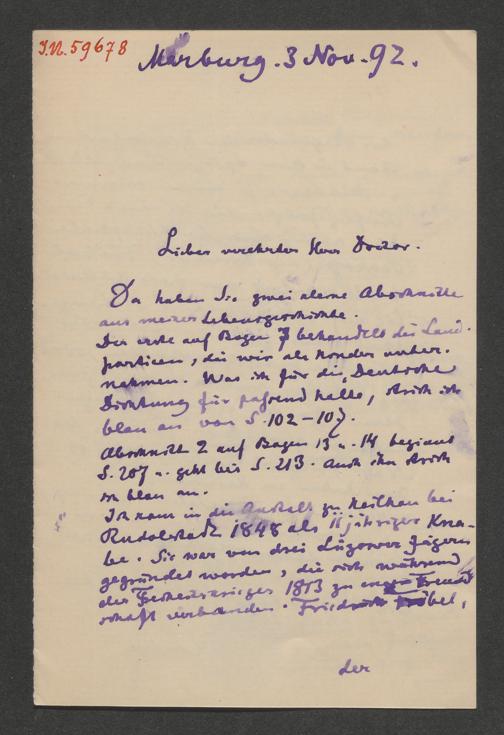 I.N. 59678
Marburg. 3 Nov. 92.
Lieber verehrter Herr Doctor.
Da haben Sie zwei kleine Abschnitte
aus meiner Lebensgeschichte.
Der erste auf Bogen 7 behandelt die Land-
partieen, die wir als Kinder unter-
nahmen. Was ich für die „Deutsche
Dichtung für passend halte, strich ich
blau an von S. 102-107.
Abschnitt 2 auf Bogen 13 u. 14 beginnt
S. 207 u. geht bis S. 213. Auch ihn strich
ich blau an.
Ich kam in die Anstalt zu Keilhau bei
Rudolstadt 1848 als 11 jähriger Kna-
be. Sie war von drei Lützower Jägern
gegründet worden, die sich während
des Freiheitskrieges 1813 zu Freund
schaft verbanden. Friedrich Fröbel,
der